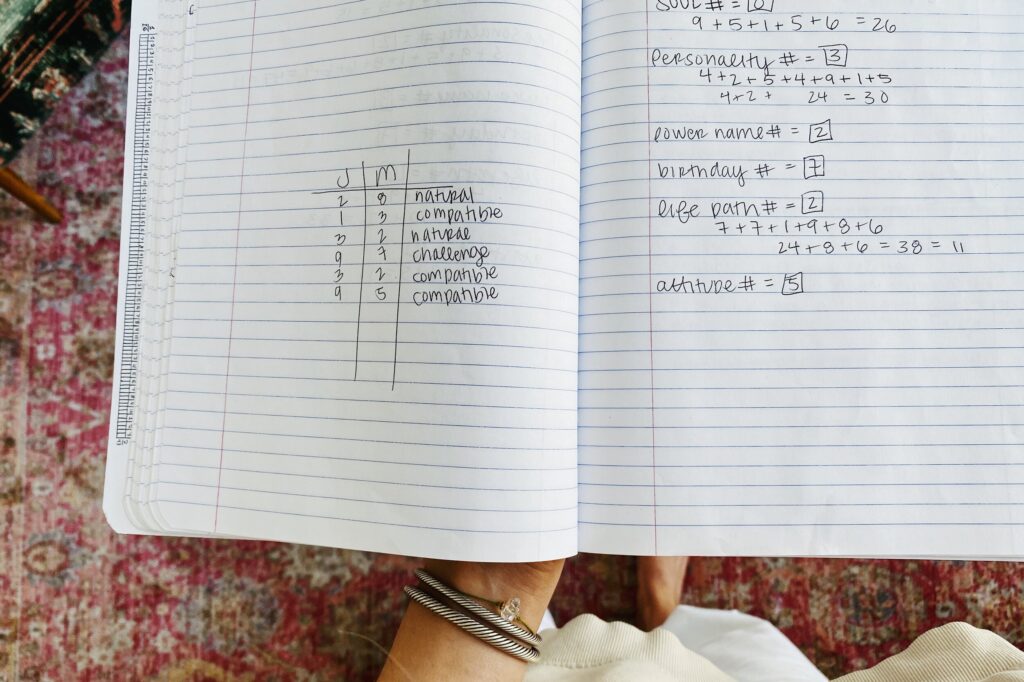 J M
2 8 natural
1 3 compatible
3 2 natural
9 7 challenge
3 2 compatible
9 5 compatible
SOUL # =
9 + 5 + 1 + 5 + 6 = 26
personality # = 3
4 + 2 + 5 + 4 + 9 + 1 + 5
4 + 2 + 24 = 30
power name # = 2
birthday # = 7
life path # = 2
7 + 7 + 1 + 9 + 8 + 6
24 + 8 + 6 = 38 = 11
attitude # = 5